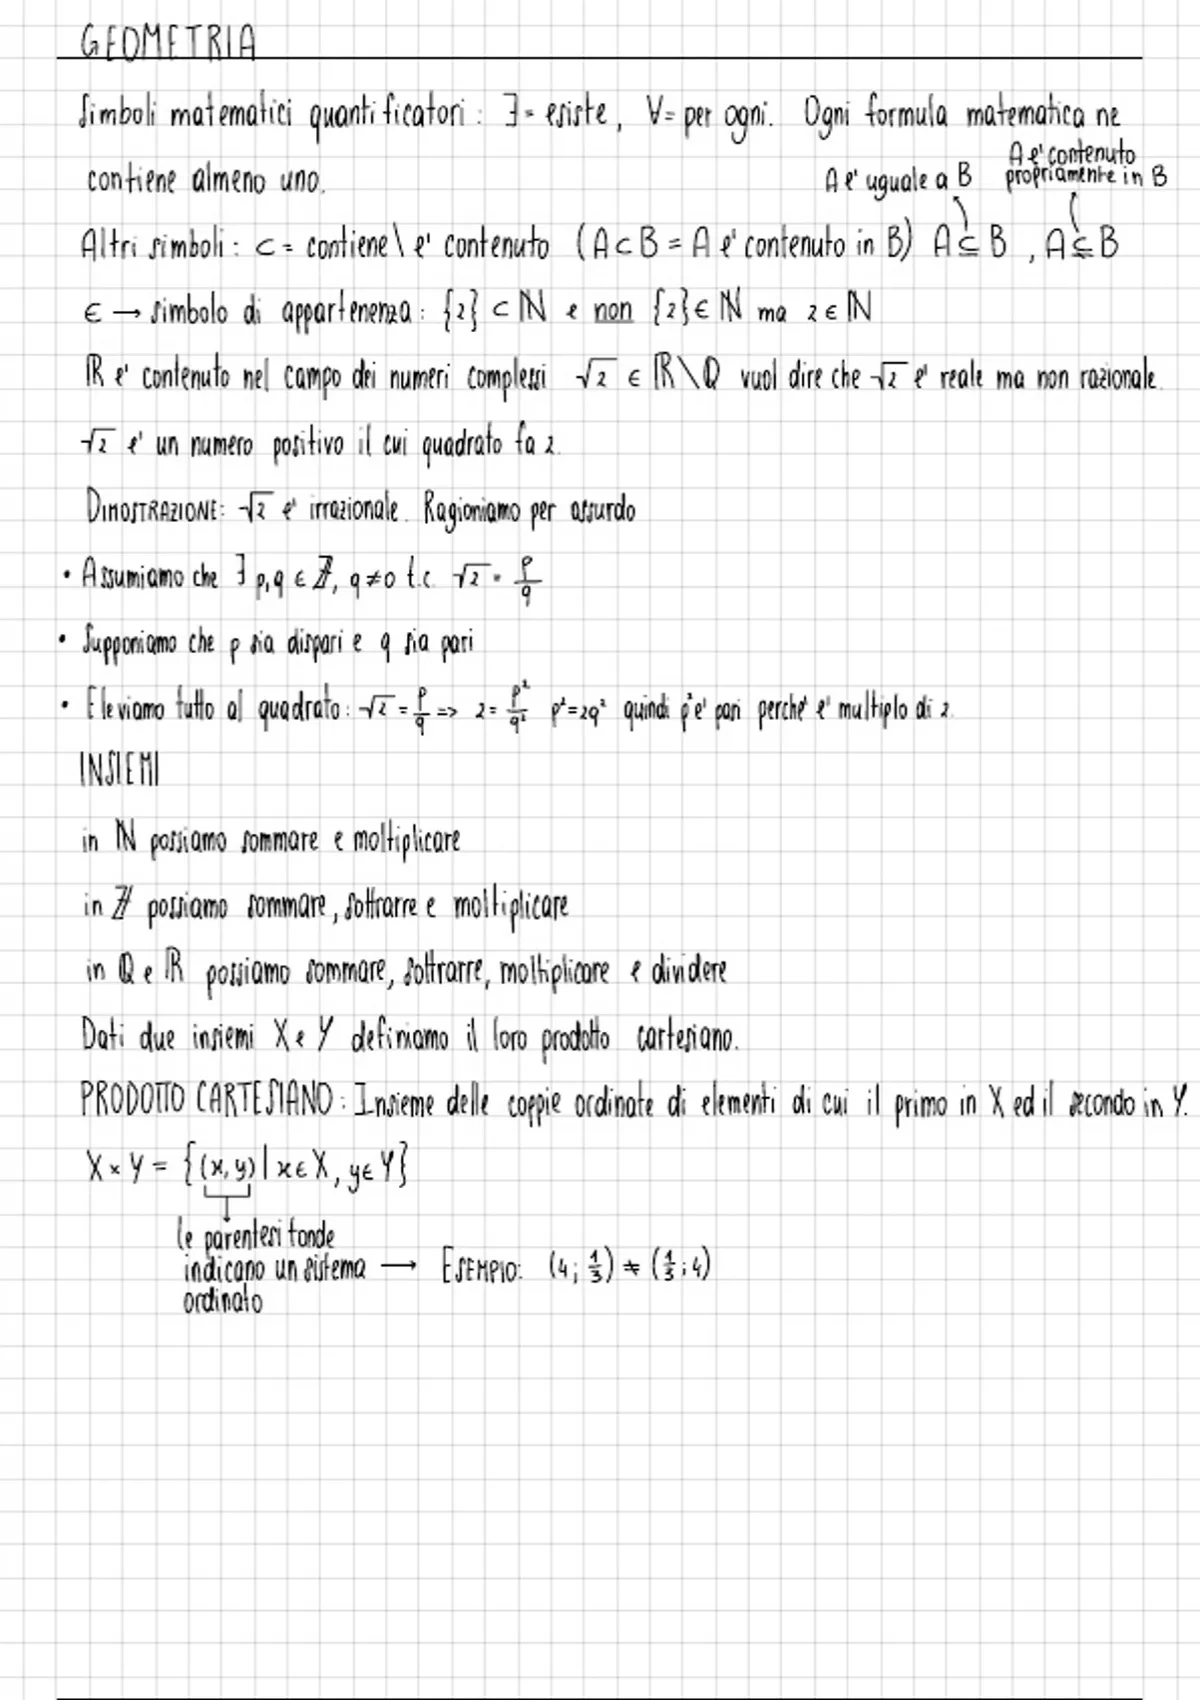 GEOMETRIA
Simboli matematici quantificatori: ∃= esiste, ∀= per ogni. Ogni formula matematica ne
contiene almeno uno.
A e' uguale a B
A e' contenuto
propriamente in B
Altri simboli: ⊂ = contiene\ e' contenuto (A⊂B = A e' contenuto in B) A⊆B , A⊊B
∈ → simbolo di appartenenza: {2} ⊂ ℕ e non {2}∈ ℕ ma 2∈ℕ
ℝ e' contenuto nel campo dei numeri complessi √2 ∈ ℝ\ℚ vuol dire che √2 e' reale ma non razionale.
√2 e' un numero positivo il cui quadrato fa 2.
DIMOSTRAZIONE: √2 e' irrazionale. Ragioniamo per assurdo
• Assumiamo che ∃ p,q ∈ ℤ, q≠0 t.c. √2 = p/q
• Supponiamo che p sia dispari e q sia pari
• Eleviamo tutto al quadrato: √2 = p/q => 2 = p²/q² p²=2q² quindi p² e' pari perche' e' multiplo di 2.
INSIEMI
in ℕ possiamo sommare e moltiplicare
in ℤ possiamo sommare, sottrarre e moltiplicare
in ℚ e ℝ possiamo sommare, sottrarre, moltiplicare e dividere
Dati due insiemi X e Y definiamo il loro prodotto cartesiano.
PRODOTTO CARTESIANO: Insieme delle coppie ordinate di elementi di cui il primo in X ed il secondo in Y.
X × Y = {(x,y) | x∈X, y∈Y}
le parentesi tonde
indicano un sistema → ESEMPIO: (4; 1/3) ≠ (1/3; 4)
ordinato